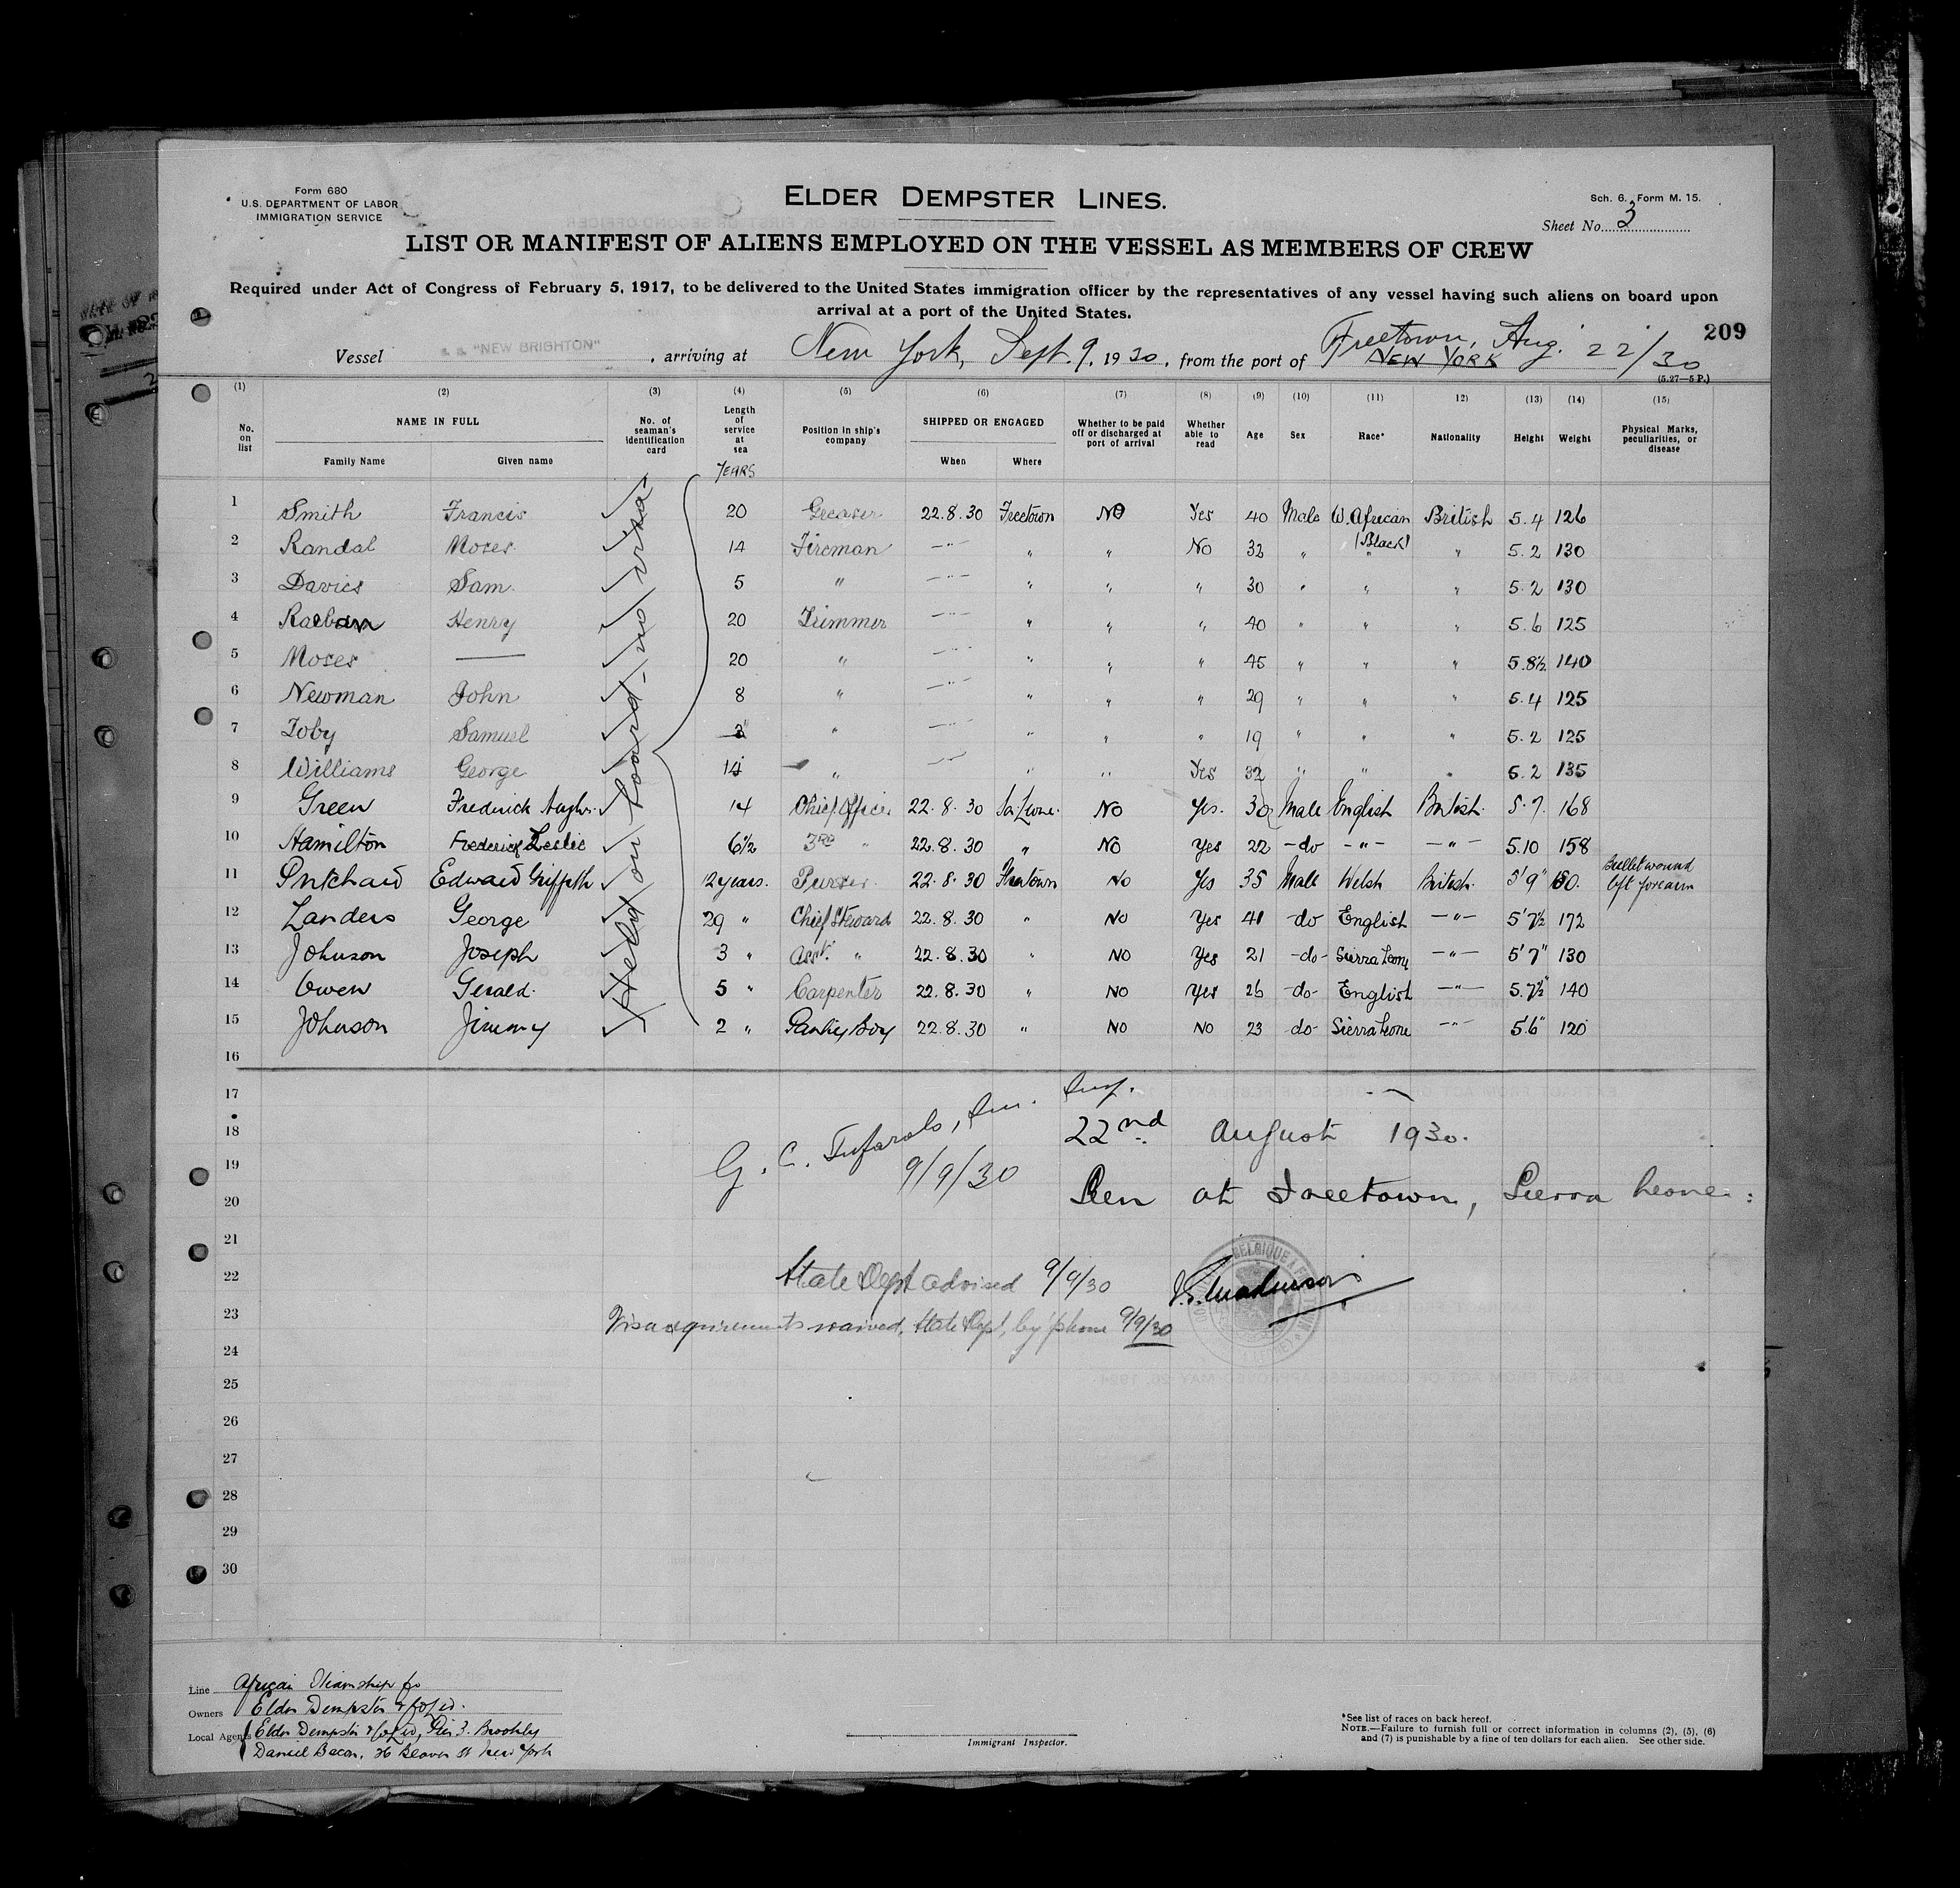 Form 680
U.S. DEPARTMENT OF LABOR
IMMIGRATION SERVICE
ELDER DEMPSTER LINES.
Sch. 6. Form M. 15.
Sheet No. 3
LIST OR MANIFEST OF ALIENS EMPLOYED ON THE VESSEL AS MEMBERS OF CREW
Required under Act of Congress of February 5, 1917, to be delivered to the United States immigration officer by the representatives of any vessel having such aliens on board upon
arrival at a port of the United States.
209
Vessel s.s. "NEW BRIGHTON", arriving at New York, Sept. 9, 1930, from the port of Freetown, Aug. 22/30
NEW YORK
(5.27—5 P.)
(1) (2) (3) (4) (5) (6) (7) (8) (9) (10) (11) 12) (13) (14) (15)
No. on list NAME IN FULL Family Name Given name No. of seaman's identification card Length of service at sea YEARS Position in ship's company SHIPPED OR ENGAGED When Where Whether to be paid off or discharged at port of arrival Whether able to read Age Sex Race* Nationality Height Weight Physical Marks, peculiarities, or disease
Held on board - no visa -
1 Smith Francis 20 Greaser 22.8.30 Freetown No Yes 40 Male W. African British 5.4 126
(Black)
2 Randal Moses 14 Fireman —"— " " No 32 " " " 5.2 130
3 Davies Sam 5 " —"— " " " 30 " " " 5.2 130
4 Henry 20 Trimmer —"— " " " 40 " " " 5.6 125
5 Moses — 20 " —"— " " " 45 " " " 5.8½ 140
6 Newman John 8 " —"— " " " 29 " " " 5.4 125
7 Toby Samuel " —"— " " " 19 " " " 5.2 125
8 Williams George 14 " —"— " " Yes 32 " " " 5.2 135
9 Green Frederick Hughes 14 Chief Officer 22.8.30 No Yes. 30 Male English British 5.7. 168
10 Hamilton Frederick Leslie 6½ 3RD " 22.8.30 " No Yes 22 -do -"- -"- 5.10 158
11 Pritchard Edward Griffith 12 years. Purser 22.8.30 Freetown No Yes 35 Male Welsh British 5'9" Bullet wound
left forearm
12 Landers George 29 " Chief Steward 22.8.30 " No Yes 41 -do- English -"- 5'7½ 172
13 Johnson Joseph 3 " Asst. " 22.8.30 " No Yes 21 -do- Sierra Leone -"- 5'7" 130
14 Owen Gerald. 5 " Carpenter 22.8.30 " No Yes 26 -do- English -"- 5.7½" 140
15 Johnson Jimmy 2 " Pantry Boy 22.8.30 " No No 23 -do- Sierra Leone -"- 5'6" 120
16
17
18
19
20
21
22
23
24
25
26
27
28
29
30
G. C. Imm. Insp.
9/9/30
22nd August 1930.
Seen at Freetown, Sierra Leone:
BELGIQUE
State Dept advised 9/9/30
Visa requirements waived, State Dept, by 'phone 9/9/30
Line African Steamship Co
Owners Elder Dempster & Co Ld.
Local Agents Elder Dempster & Co Ld, Pier 3. Brooklyn
Daniel Bacon, 26 Beaver St New York
Immigrant Inspector.
*See list of races on back hereof.
NOTE.—Failure to furnish full or correct information in columns (2), (5), (6)
and (7) is punishable by a fine of ten dollars for each alien. See other side.